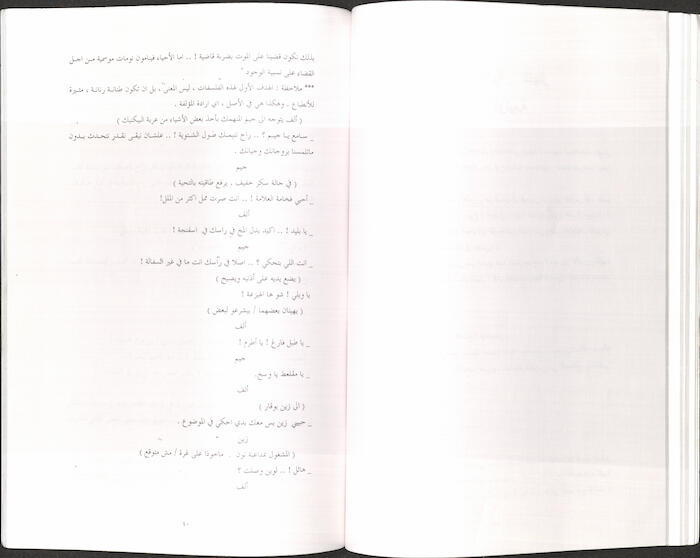 بذلك نكون قضينا على الموت بضربة قاضية ! .. اما الأحياء فينامون نومات موسمية من اجل
القضاء على نسبية الوجود "
*** ملاحظة : الهدف الأول لهذه الفلسفات ، ليس المعنى ، بل ان تكون طنانة رنانة ، مثيرة
للأنطباع . وهكذا هي في الأصل ، اي ارادة المؤلفة .
( ألف يتوجه الى جيم المنهمك بأخذ بعض الأشياء من عربة البيكنيك )
_ سامع يا جيم ؟ .. راح نتيمك طول الشتوية ! .. علشان نبقى نقدر نتحدث بدون
ماتلمسنا بروحاتك وجياتك .
جيم
( في حالة سكر خفيف . يرفع طاقيته بالتحية )
_ أحيي فخامة العلامة ! .. انت صرت ممل اكثر من الملل!
ألف
_ يا بليد ! .. اكيد بدل المخ في راسك في اسفنجة !
جيم
_ انت اللي بتحكي ؟ .. اصلا في رأسك انت ما في غير السفالة !
( يضع يديه على أذنيه ويصيح )
يا ويلي ! شو ها الجيزعة !
( يهينان بعضهما / بيشرعو لبعض )
ألف
_ يا طبل فارغ ! يا أطرم !
جيم
_ يا مقلعط يا وسخ.
ألف
( الى زين بوقار )
_ حبيبي زين بس معك بدي احكي في الموضوع .
زين
( المشغول بمداعبة نون . ماخوذا على غرة / مش متوقع )
_ هائل ! .. لوين وصلت ؟
ألف
٤٠